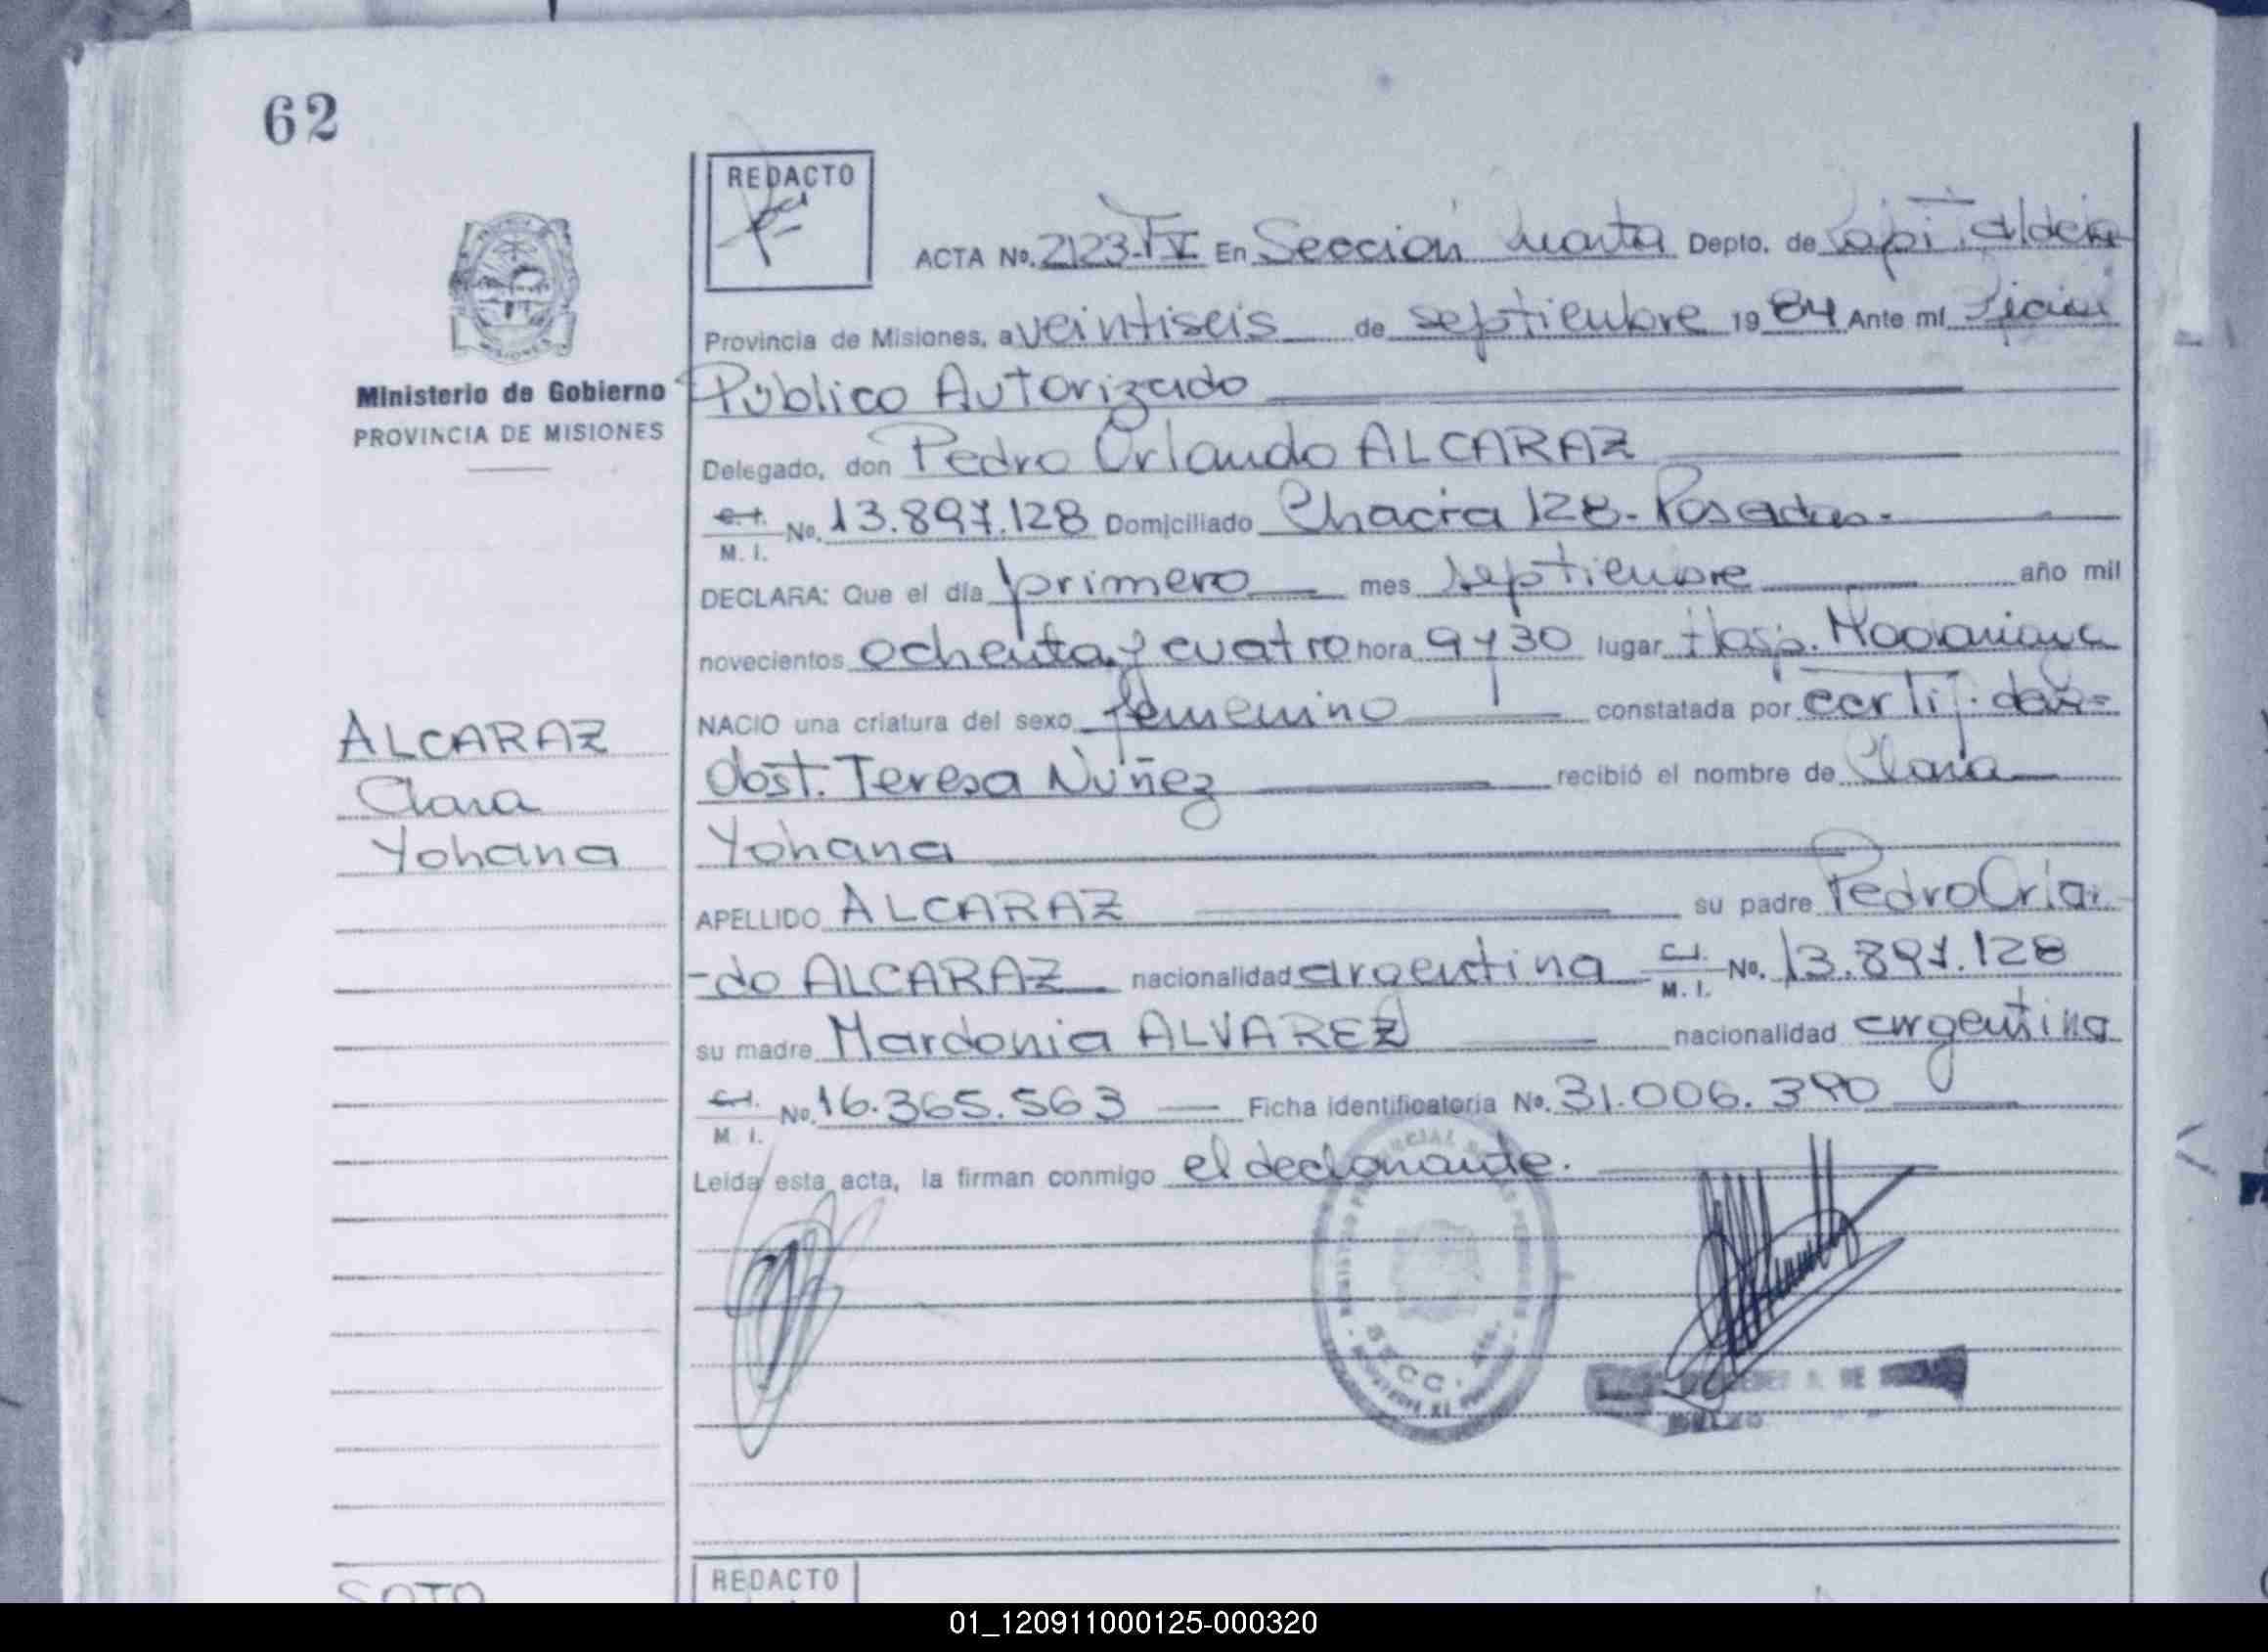 62
REDACTO
ACTA Nº. 2123-IV En Sección Cuarta Depto. de Capital de la
Provincia de Misiones, a veintiseis de septiembre 1984 Ante mí Oficial
Público Autorizado
Ministerio de Gobierno
PROVINCIA DE MISIONES
MISIONES
Delegado, don Pedro Orlando ALCARAZ
C.I. M. I. No. 13.897.128 Domiciliado Chacra 128- Posadas.-
DECLARA: Que el día primero mes septiembre año mil
novecientos ochenta y cuatro hora 9 y 30 lugar Hosp. Madariaga
NACIO una criatura del sexo femenino constatada por certif. de
ALCARAZ
Clara
Yohana
Obst. Teresa Núñez recibió el nombre de Clara
Yohana
APELLIDO ALCARAZ su padre Pedro Orlan
-do ALCARAZ nacionalidad argentina C.I. M. I. No. 13.897.128
su madre Mardonia ALVAREZ nacionalidad argentina
C.I. M. I. No. 16.365.563 Ficha identificatoria Nº. 31.006.390
Leída esta acta, la firman conmigo el declarante.
SECC. 4ta.
SOTO
REDACTO
01_120911000125-000320